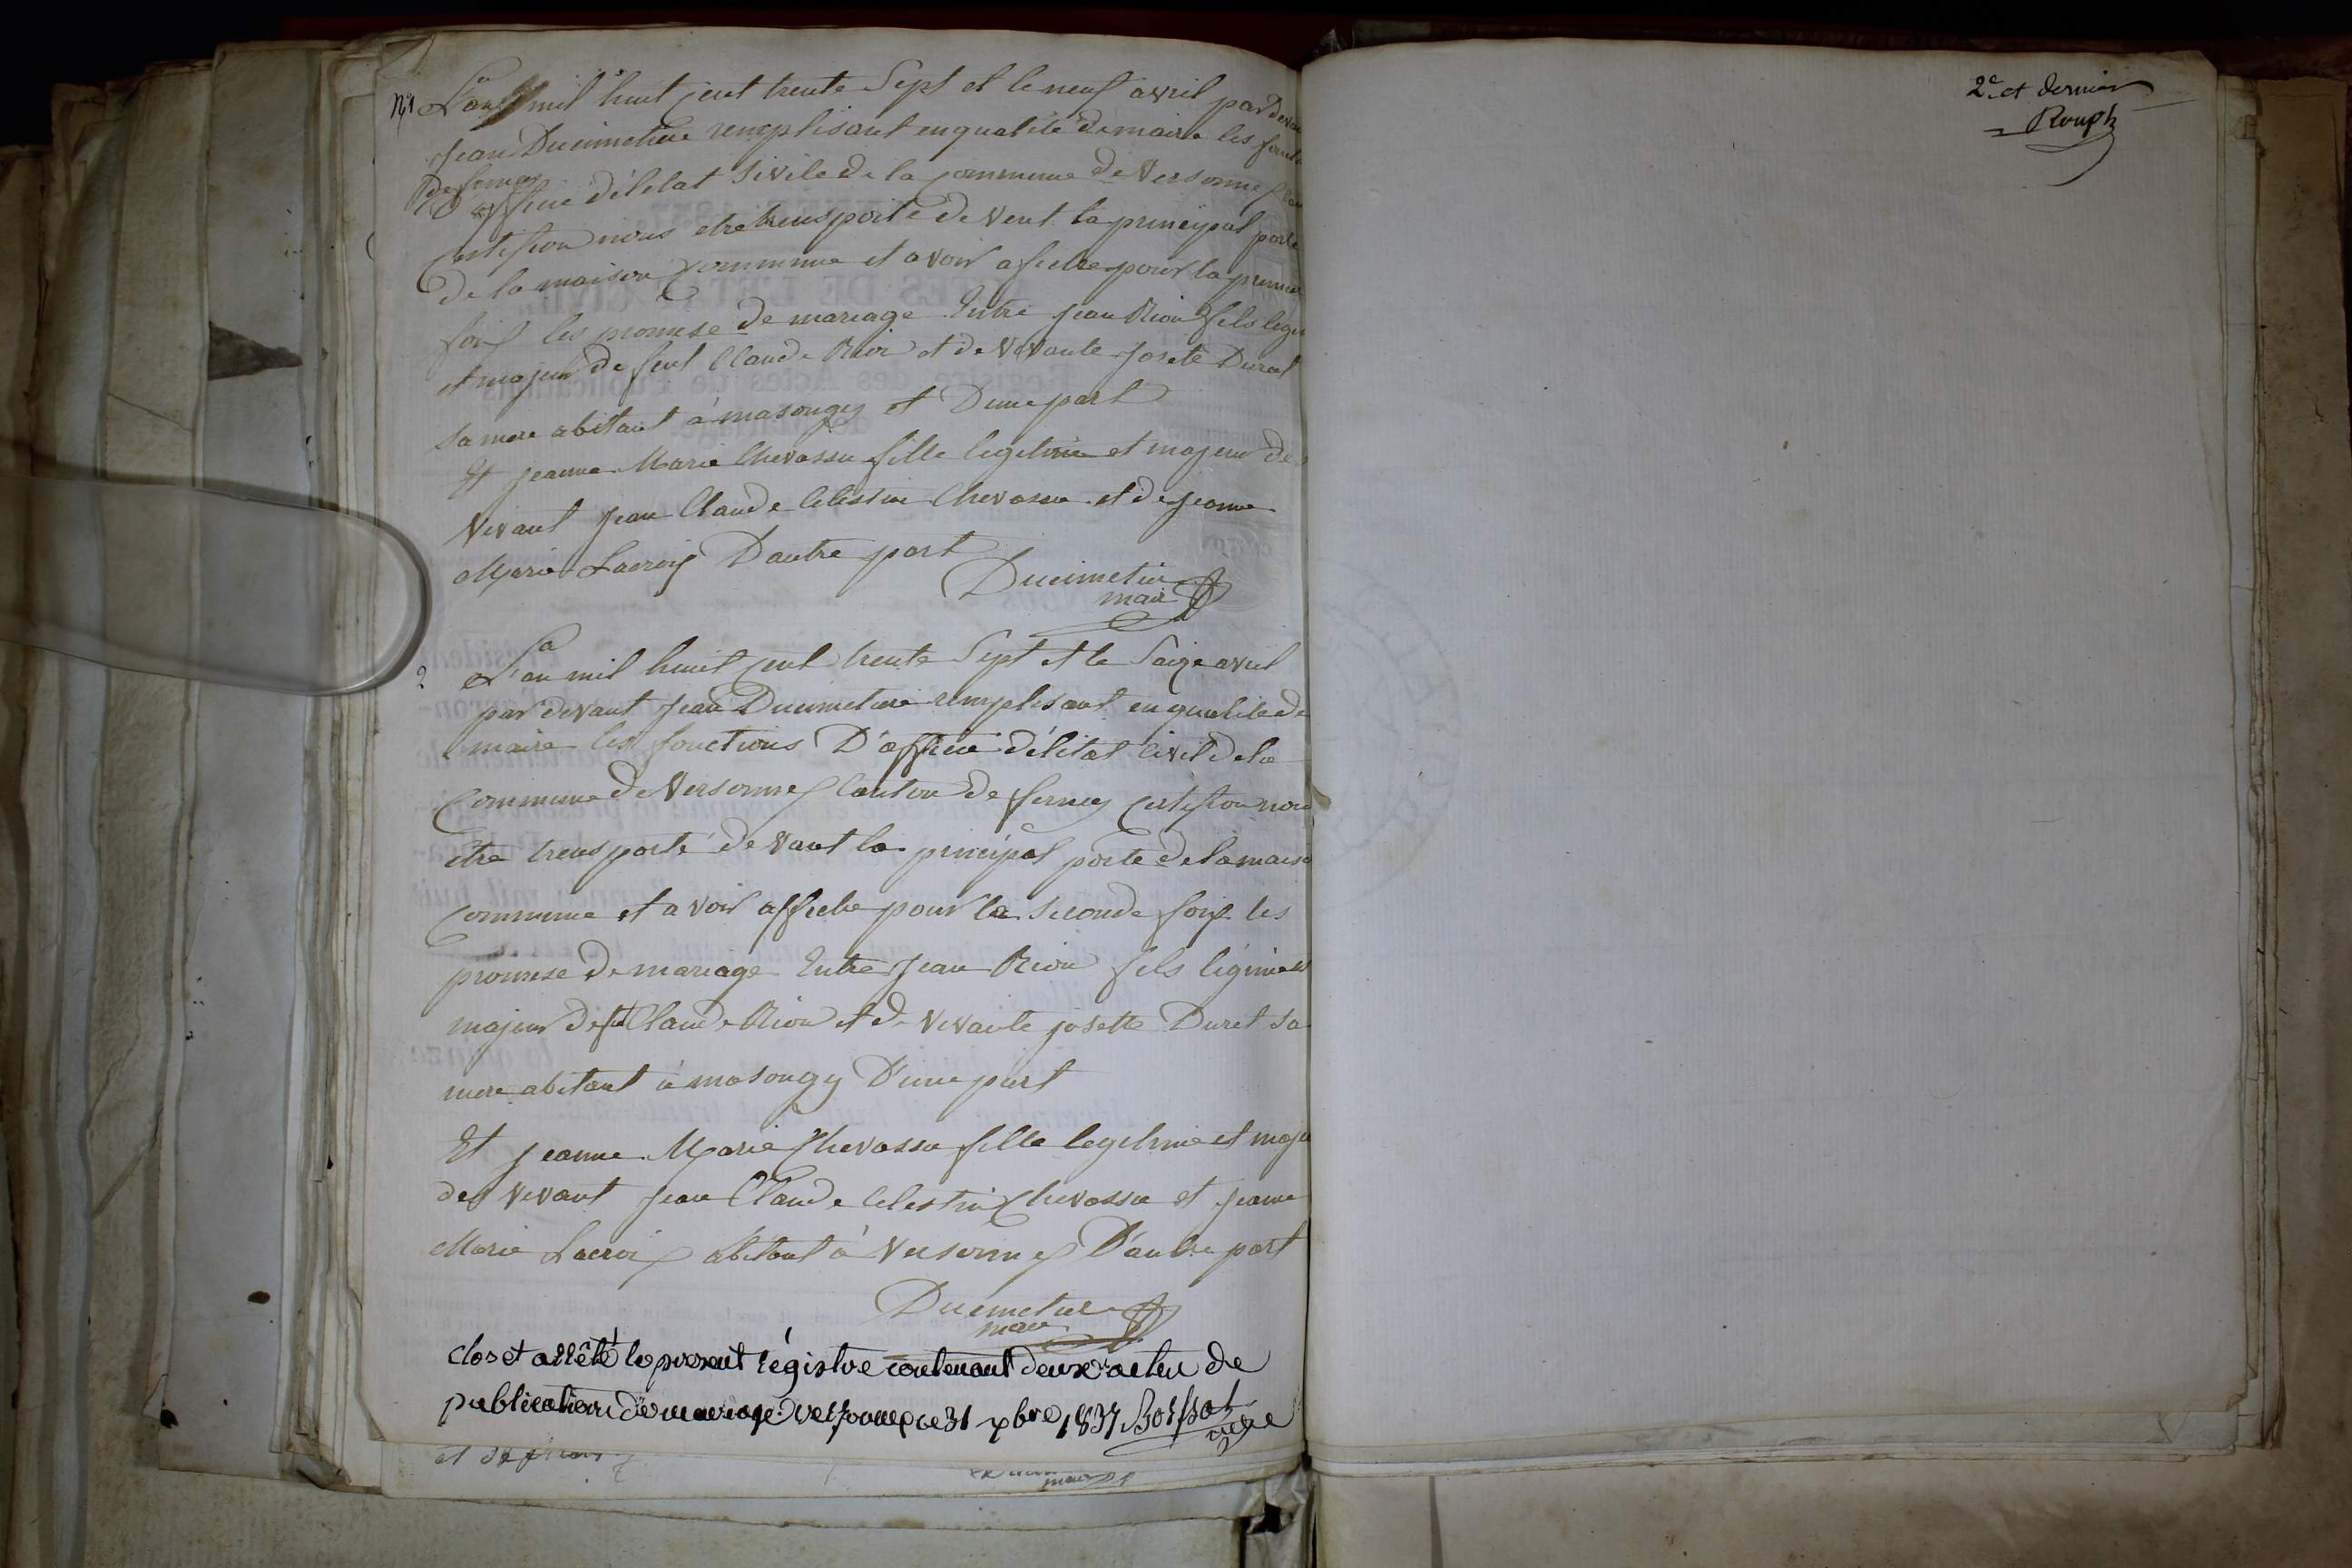 N°1 L'an mil huit cent trente Sept et le neuf avril par devan
Jean Ducimetiere remplisant en qualité de maire les foncti
de ferney
D'officie délétat Sivile de la commune de Versonnex can
Certifion nous etre trensporté devent la principal porte
de la maison commune et avoir afiche pour la premier
foix les promese de mariage Entre Jean Rion fils legi
et majeur de feut Claude Rion et de Vivante Josete Duret
sa mere abitant à masongy et D'une part
Et jeanne Marie Chevassu fille legitime et majeur de
Vivant Jean Claude Celestin Chevassu et de jeanne
Marie Lacroix D'autre part
Ducimetier
maire
2 L'an mil huit cent trente Sept et le Saize avril
par devant Jean Ducimetiere remplisant en qualité de
maire les fonctions D'officie délétat Civil de la
Commune de Versonnex Canton de ferney Certifion nous
etre trensporté devant la principal porte de la maiso
commune et avoir affiche pour la seconde foix les
promese de mariage Entre Jean Rion fils légime et
majeur de ft Claude Rion et de Vivante josette Duret sa
mere abitant à masongy D'une part
Et jeanne Marie Chevassu fille legitime et maje
de Vivant Jean Claude Celestin Chevassu et jeanne
Marie Lacroix abitant à Versonnex D'autre part
Ducimetier
maire
clos et arrêté le présent régistre contenant deux actes de
publication de mariage. Versonnex ce 31 xbre 1837 Bossat
maire
2e et dernier
Rouph